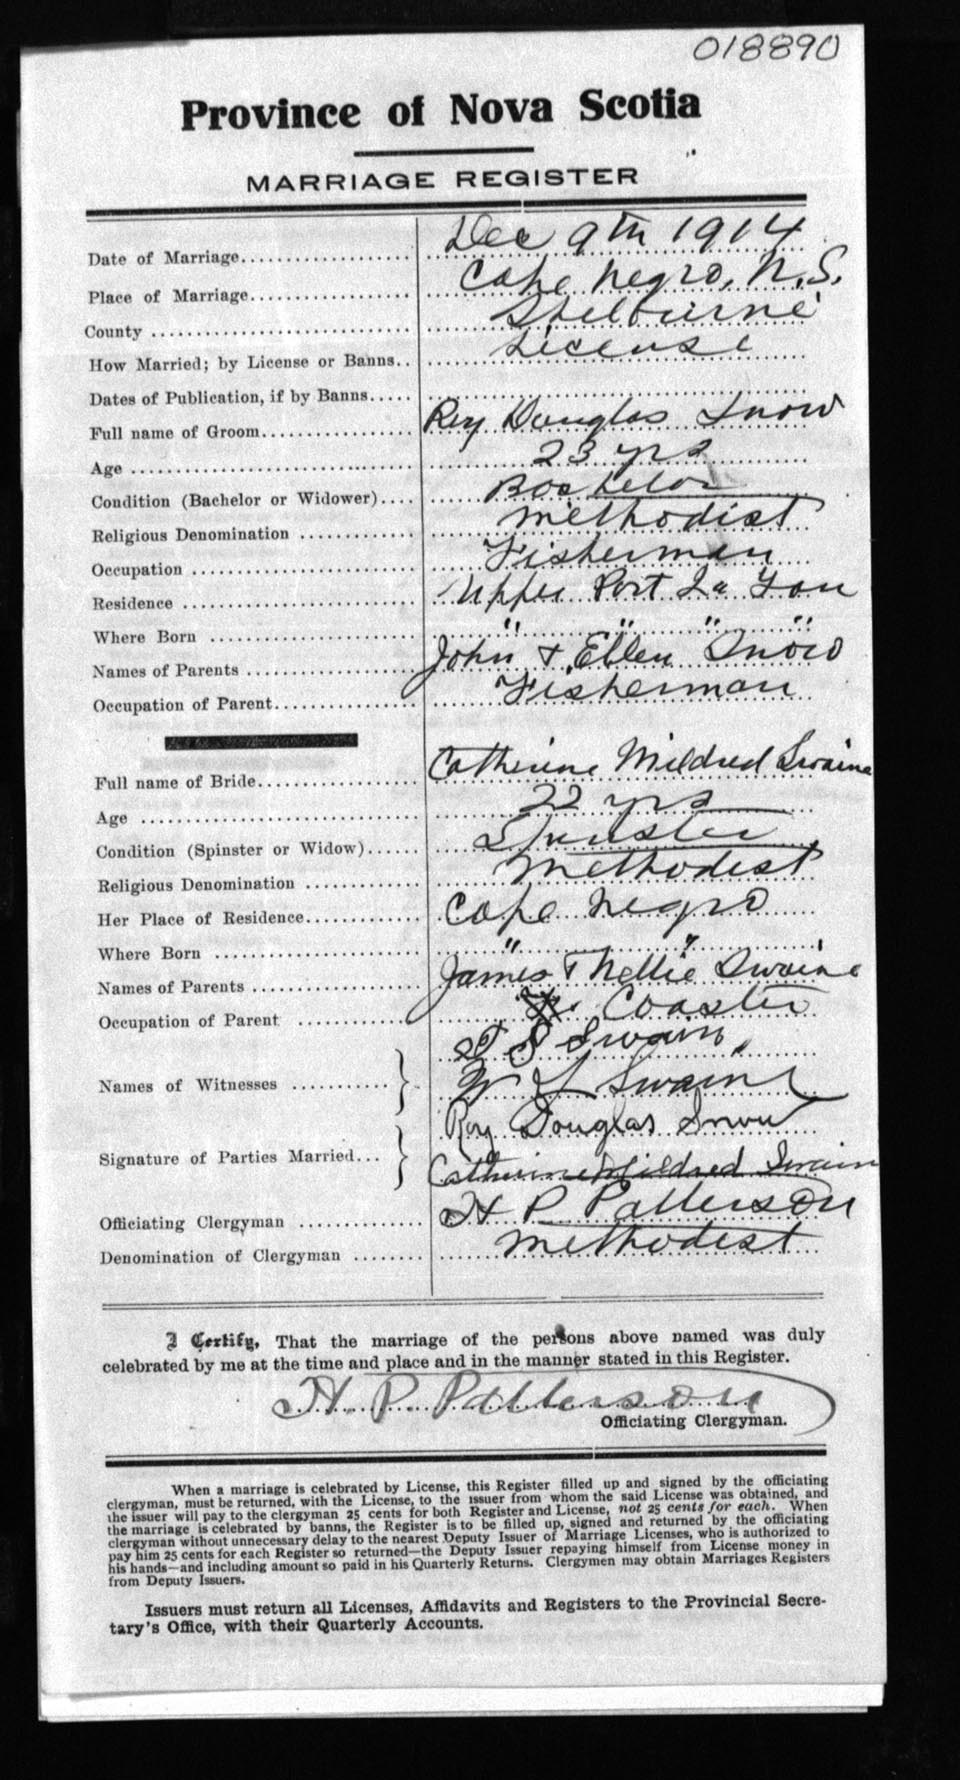 018890
Province of Nova Scotia
MARRIAGE REGISTER
Date of Marriage.................... Dec 9th 1914
Place of Marriage................... Cape Negro, N.S.
County .............................. Shelburne
How Married; by License or Banns.. License
Dates of Publication, if by Banns.....
Full name of Groom.................. Roy Douglas Snow
Age .................................. 23 yrs
Condition (Bachelor or Widower).... Bachelor
Religious Denomination ............. Methodist
Occupation .......................... Fisherman
Residence ........................... Upper Port La Tour
Where Born ......................... " " " "
Names of Parents .................... John & Ellen Snow
Occupation of Parent................. Fisherman
Full name of Bride................... Catherine Mildred Swaine
Age .................................. 22 yrs
Condition (Spinster or Widow)...... Spinster
Religious Denomination ............. Methodist
Her Place of Residence.............. Cape Negro
Where Born ......................... " "
Names of Parents .................... James & Nellie Swaine
Occupation of Parent ............... Coaster
S Swain
Names of Witnesses ........... } Swaine
Roy Douglas Snow
Signature of Parties Married... }
Catherine Mildred Swain
Officiating Clergyman ............... H P Patterson
Denomination of Clergyman ........ Methodist
I Certify, That the marriage of the persons above named was duly
celebrated by me at the time and place and in the manner stated in this Register.
H. P. Patterson
Officiating Clergyman.
When a marriage is celebrated by License, this Register filled up and signed by the officiating
clergyman, must be returned, with the License, to the issuer from whom the said License was obtained, and
the issuer will pay to the clergyman 25 cents for both Register and License, not 25 cents for each. When
the marriage is celebrated by banns, the Register is to be filled up, signed and returned by the officiating
clergyman without unnecessary delay to the nearest Deputy Issuer of Marriage Licenses, who is authorized to
pay him 25 cents for each Register so returned—the Deputy Issuer repaying himself from License money in
his hands—and including amount so paid in his Quarterly Returns. Clergymen may obtain Marriages Registers
from Deputy Issuers.
Issuers must return all Licenses, Affidavits and Registers to the Provincial Secre-
tary's Office, with their Quarterly Accounts.